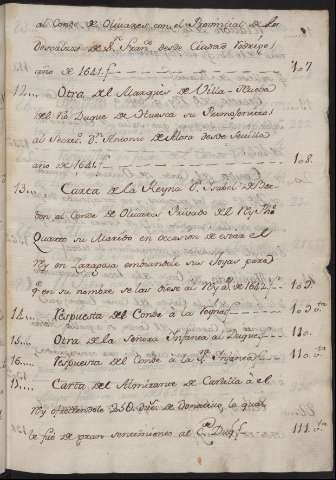 al Conde de Olivares con el Provincial de los
Descalzos de Sn. Franco. desde Ciudad Rodrigo
año de 1641. 107
12.... Otra del Marques de Villa-Nueva
del Rio Duque de Huesca su Primogenito
al Secreto. Dn. Antonio de Mora desde Sevilla
año de 1641. 108
13... Carta de la Reyna Da. Isabel de Bor
bon al Conde de Olivares Privado del Rey Phe.
Quarto su Marido en ocasion de estar el
Rey en Zaragoza embiandole sus Joyas para
q. en su nombre se las diese al Rey año de 1642 109
14... Respuesta del Conde à la Reyna 109 vta
15... Otra de la Señora Infanta al Duque 110.
16... Respuesta del Conde à la Sa. Infanta 110 vta
17... Carta del Almirante de Castilla à el
Rey ofreciendole 250. de Donativo, la qual
le fue de gran sentimiento al Duq 111 vta